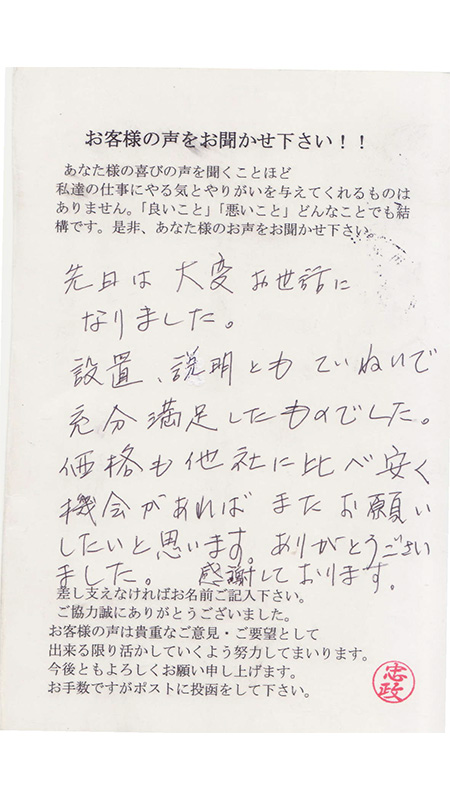 お客様の声をお聞かせ下さい！！
あなた様の喜びの声を聞くことほど
私達の仕事にやる気とやりがいを与えてくれるものは
ありません。「良いこと」「悪いこと」どんなことでも結
構です。是非、あなた様のお声をお聞かせ下さい。
先日は 大変 お世話に
なりました。
設置、説明とも ていねいで
充分満足したものでした。
価格も他社に比べ安く
機会があれば またお願い
したいと思います。ありがとうござい
ました。 感謝しております。
差し支えなければお名前ご記入下さい。
ご協力誠にありがとうございました。
お客様の声は貴重なご意見・ご要望として
出来る限り活かしていくよう努力してまいります。
今後ともよろしくお願い申し上げます。
お手数ですがポストに投函をして下さい。
忠政